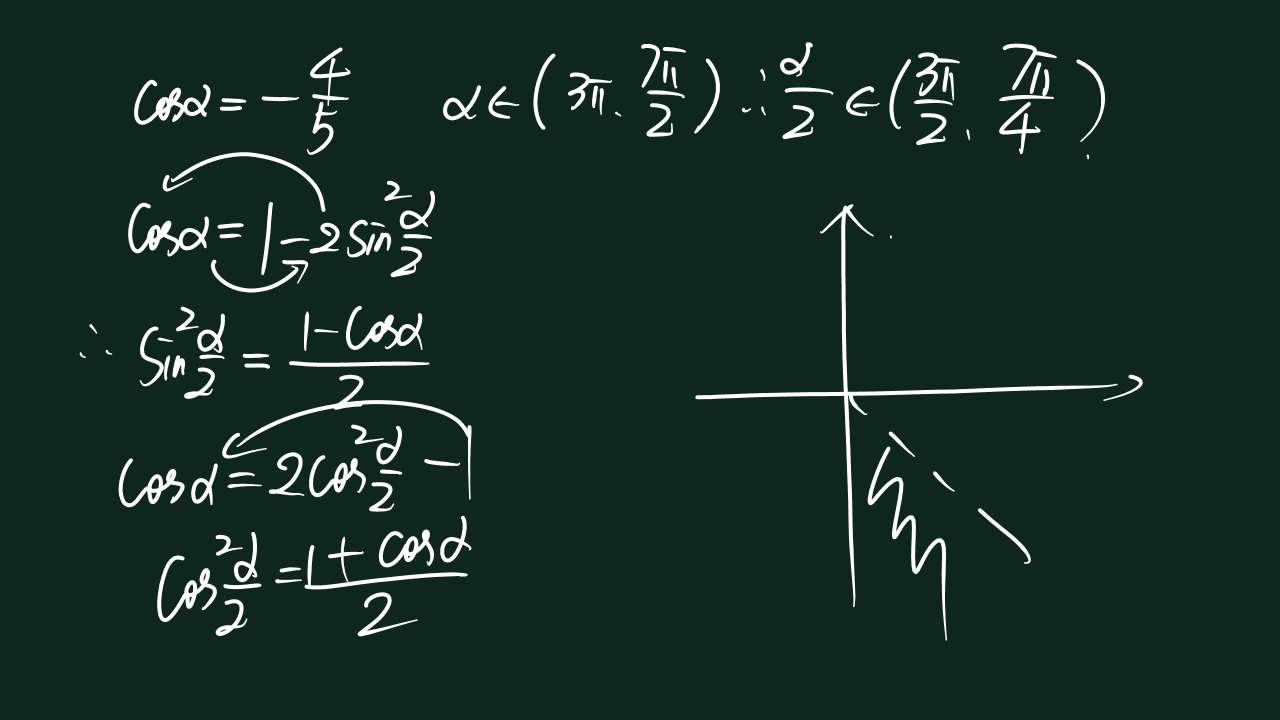 cosα = - 4/5   α ∈ (3π, 7π/2) ∴ α/2 ∈ (3π/2, 7π/4)
cosα = 1 - 2 sin² α/2
∴ sin² α/2 = (1 - cosα)/2
cosα = 2cos² α/2 - 1
cos² α/2 = (1 + cosα)/2